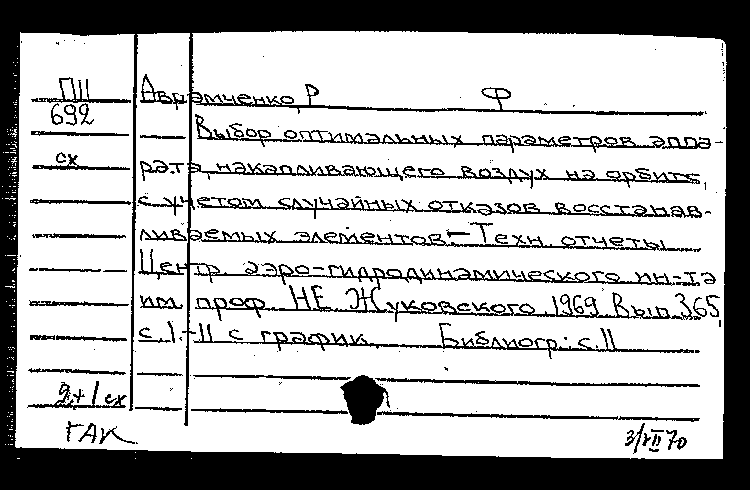 ПII
692
сх
Аврамченко, Р Ф
Выбор оптимальных параметров аппа-
рата, накапливающего воздух на орбите,
с учетом случайных отказов восстанав-
ливаемых элементов. – Техн. отчеты
Центр. аэро-гидродинамического ин-та
им. проф. Н Е Жуковского, 1969, Вып. 365,
с. 1-11 с график. Библиогр.: с. 11
2+1 сх
ГАК
3/VII 70